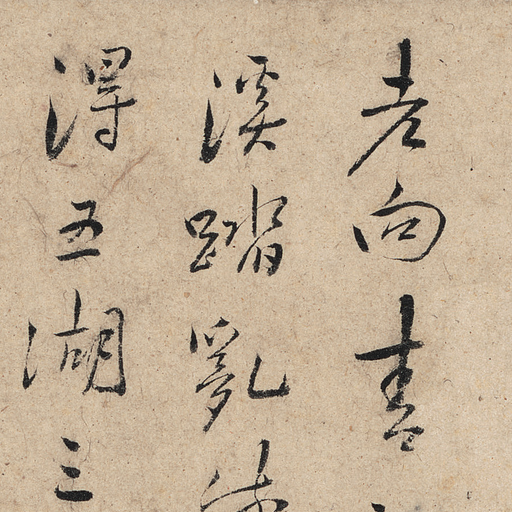 老向書
溪踏亂
得五湖三